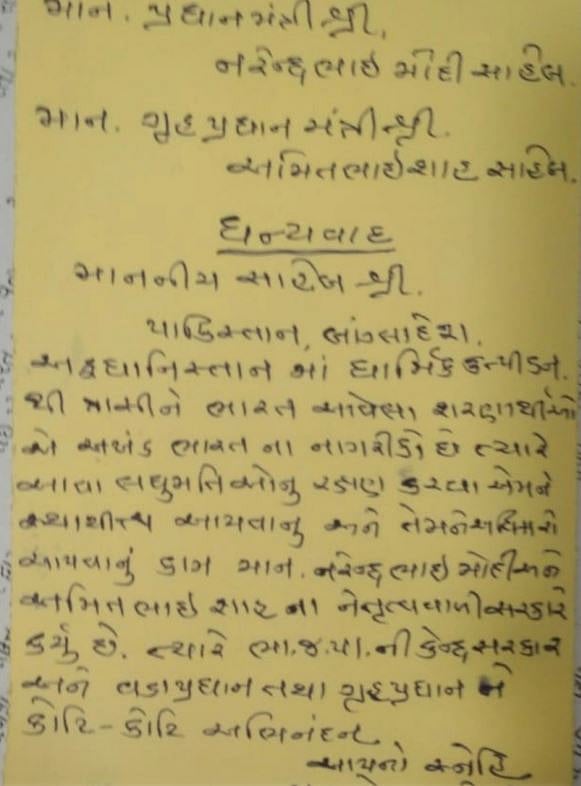 માન. પ્રધાનમંત્રી શ્રી,
નરેન્દ્રભાઇ મોદી સાહેબ.
માન. ગૃહ પ્રધાન મંત્રી શ્રી.
અમિતભાઇ શાહ સાહેબ.
ધન્યવાદ
માનનીય સાહેબ શ્રી.
પાકિસ્તાન, બાંગ્લાદેશ.
અફઘાનિસ્તાન માં ધાર્મિક ઉત્પીડન.
થી ત્રાસીને ભારત આવેલા શરણાર્થીઓ
એ અખંડ ભારત ના નાગરીકો છે ત્યારે
આવા લઘુમતિઓનુ રક્ષણ કરવા એમને
આપવાનુ અને તેમને
આપવાનું કામ માન. નરેન્દ્રભાઇ મોદી અને
અમિતભાઇ શાહ ના નેતૃત્વવાળી સરકારે
કર્યુ છે. ત્યારે ભા.જ.પા. ની કેન્દ્ર સરકાર
અને વડાપ્રધાન તથા ગૃહપ્રધાન ને
કોટિ-કોટિ અભિનંદન
આપનો સ્નેહિ